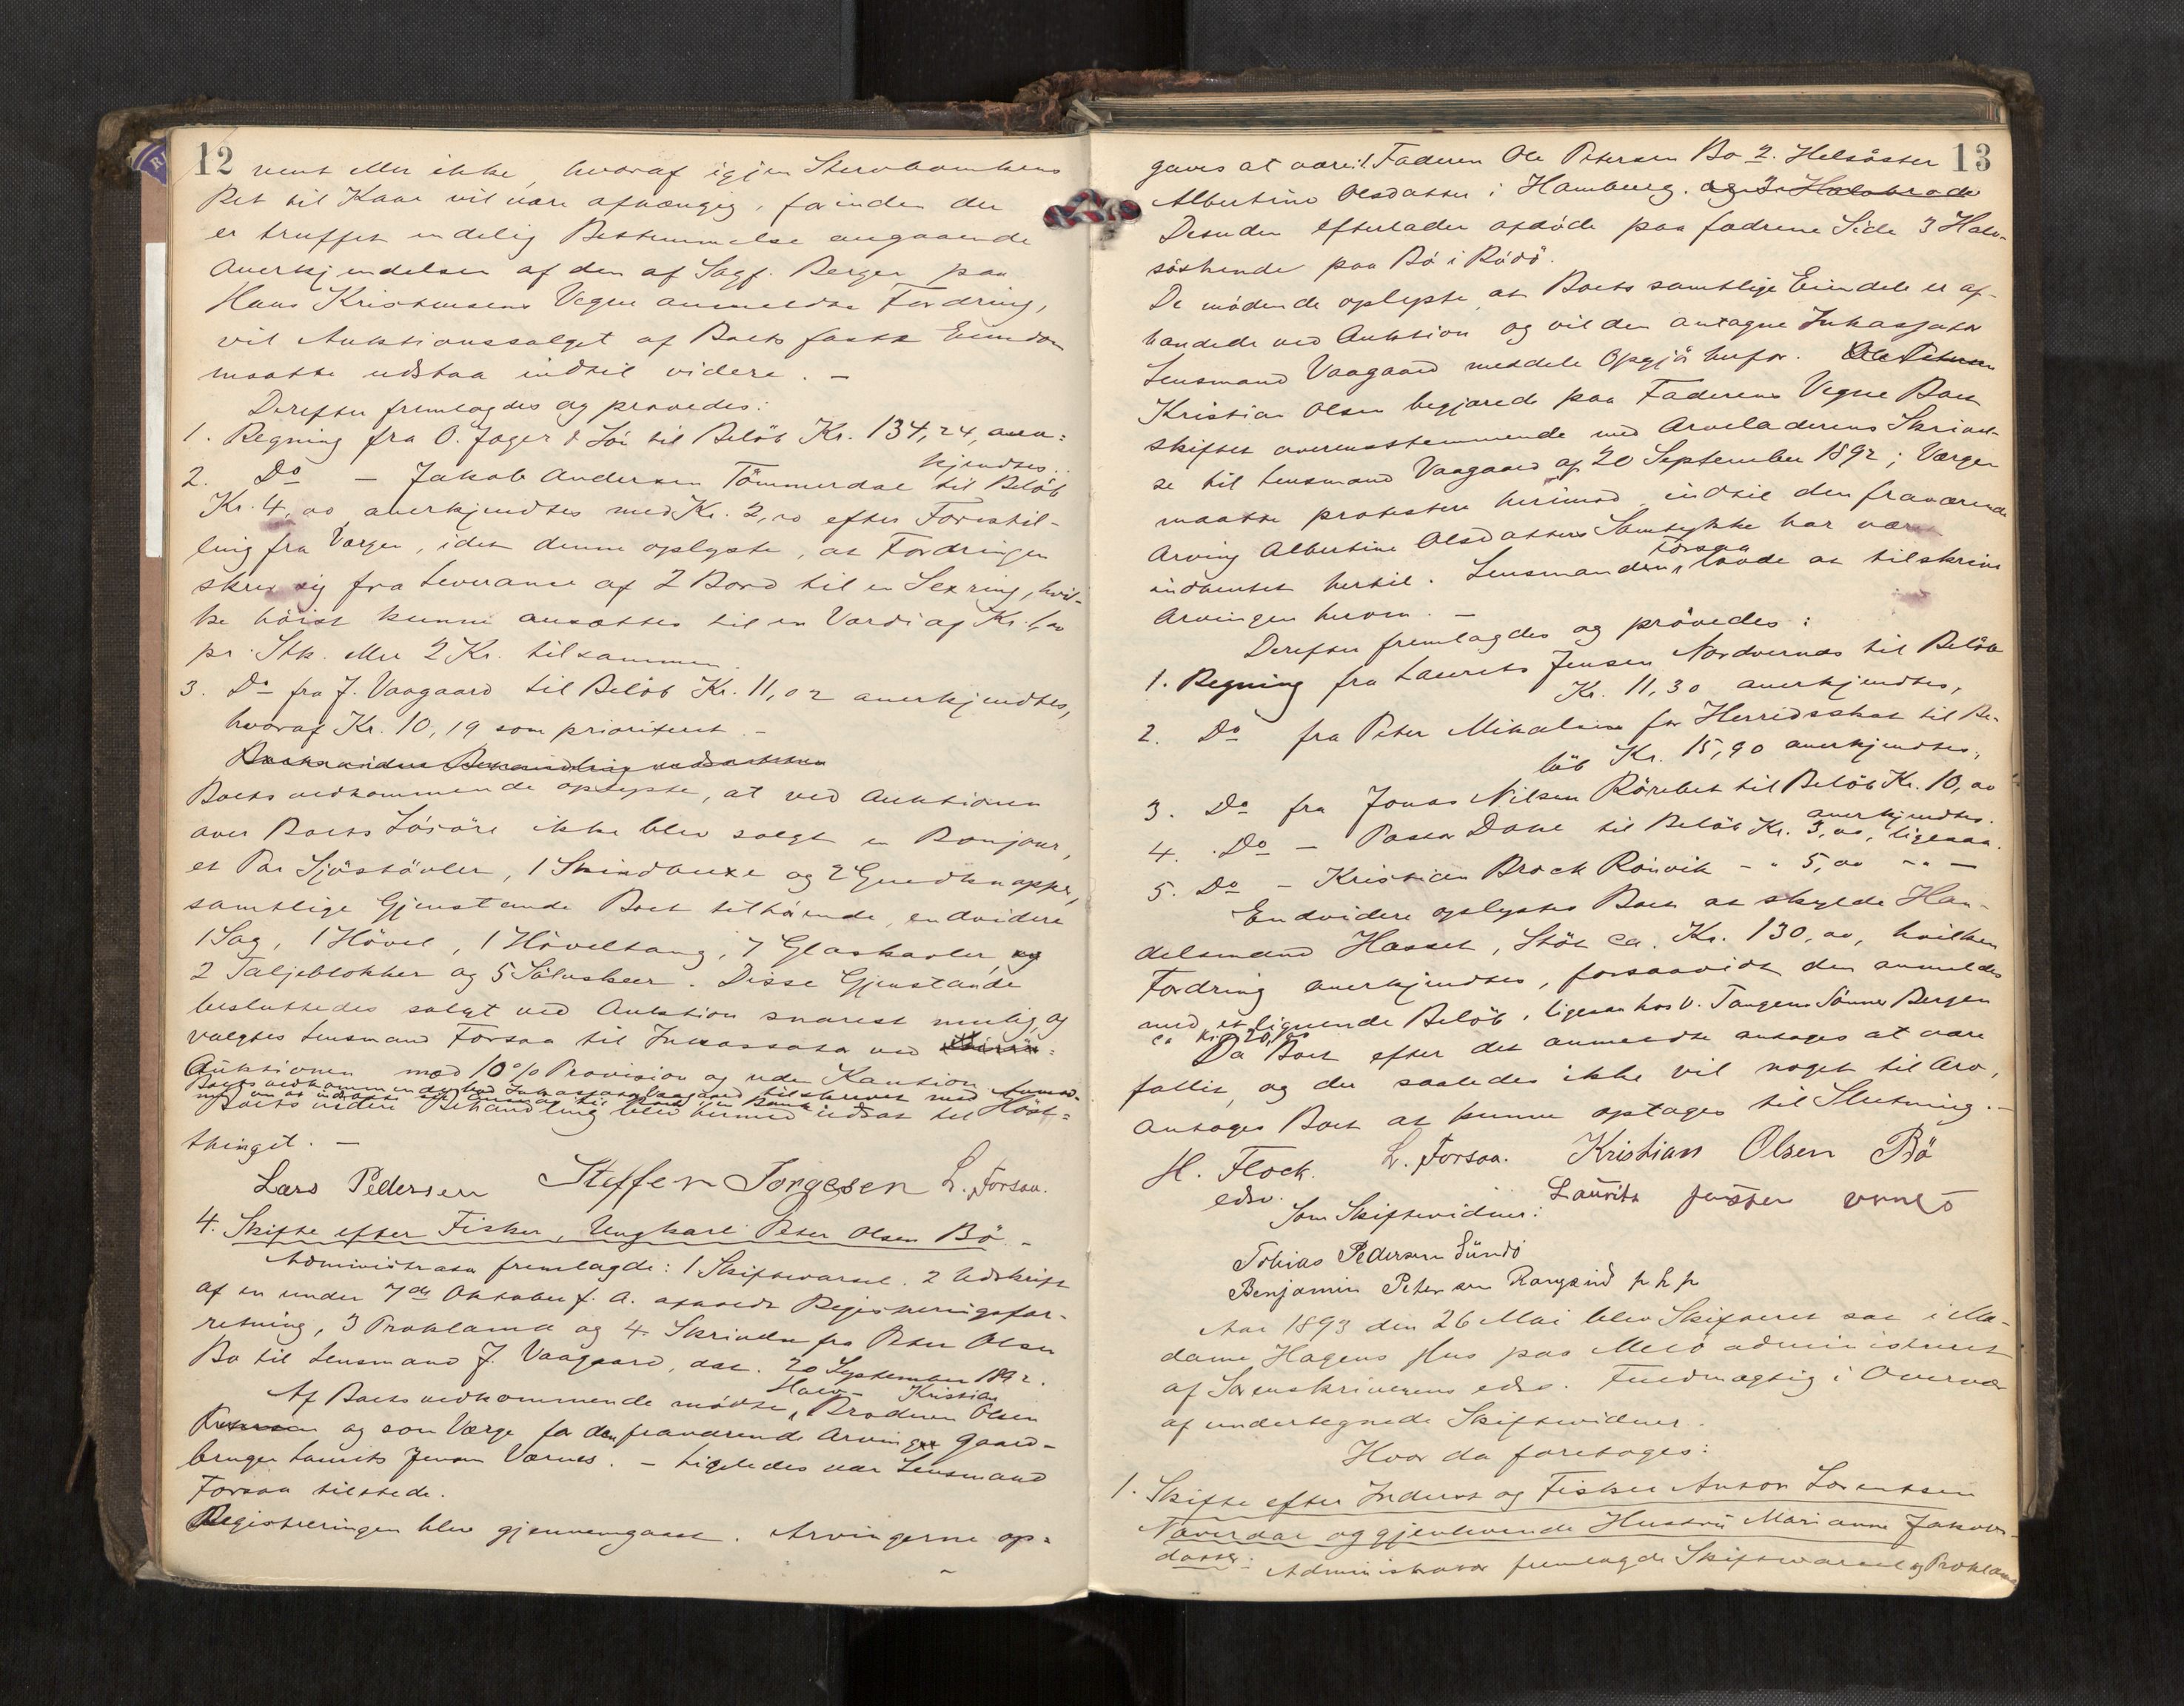 12
vent eller ikke, hvoraf igjen Stervboenkens
Ret til Kaar vil være afhængig, førinden der
er truffet endelig Bestemmelse angaaende
Anerkjendelsen af den af Sagf. Berger paa
Hans Kristensens Vegne anmeldte Fordring,
vil Auktionssalget af Boets faste Eiendom
maatte udstaa indtil videre. –
Derefter fremlagdes og prøvedes:
1. Regning fra O. Jager & Søn til Beløb Kr. 134,24, aner=
kjendtes.
2. Do – Jakob Andersen Tömmerdal til Beløb
Kr. 4,00 anerkjendtes med Kr. 2,00 efter Forestil-
ling fra Værgen, idet denne oplyste, at Fordringen
skrev sig fra Leverance af 2 Bord til en Sexring, hvil-
ke höist kunne ansættes til en Værdi af Kr. 1,00
pr. Stk. eller 2 Kr. tilsammen.
3. Do fra J. Vaagaard til Beløb Kr. 11,02 anerkjendtes,
hvoraf Kr. 10,19 som prioriteret. –
Boets vedkommende oplyste, at ved Auktionen
over Boets Løsøre ikke blev solgt en Bonjour,
et Par Sjöstövler, 1 Skindbuxe og 2 Guldknapper,
samtlige Gjenstande Boet tilhørende, endvidere
1 Sag, 1 Hövel, 1 Höveltang, 7 Glaskavler, og
2 Taljeblokker og 5 Söluskeer. Disse Gjenstande
besluttedes solgt ved Auktion snarest mulig, og
valgtes Lensmand Forsaa til Inkassator ved
Auktionen mod 10% Provision og uden Kaution.
Boets vedkommende bad Inkassator Vaagaard tilskrevet med Anmod-
ning om at indsætte
Boets videre Behandling blev hermed udsat til Höst=
thinget. –
Lars Pedersen Steffen Jörgesen L. Forsaa.
4. Skifte efter Fisker, Ungkarl Peter Olsen Bö –
Administrator fremlagde: 1 Skiftevarsel. 2 Udskrift
af en under 7de Oktober f. A. afholdt Registreringsfor-
retning, 3 Proklama og 4. Skrivelse fra Peter Olsen
Bö til Lensmand J. Vaagaard, dat. 20 September 1892.
Halv- Kristian
Af Boets vedkommende mödte, Broderen Olsen
og som Værge for den fraværende Arving Gaard-
bruger Laurits Jensen Værnes. – Ligeledes var Lensmand
Forsaa tilstede.
Registreringen blev gjennemgaaet. Arvingerne op=
13
gaves at være: 1. Faderen Ole Petersen Bø 2. Helsöster
Albertine Olsdatter i Hamburg. og 3. Halvbrode
Desuden efterlader afdøde paa fædrene Side 3 Halv-
söskende paa Bö i Rödö.
De mödende oplyste, at Boets samtlige Eiendele er af-
hændede ved Auktion og vil den antagne Inkassator
Lensmand Vaagaard meddele Opgjör herfor. Ole Petersen
Kristian Olsen begjærede paa Faderens Vegne Boet
skiftet overensstemmende med Arveladerens Skrivel-
se til Lensmand Vaagaard af 20 September 1892; Værgen
maatte protestere herimod, indtil den fraværende
Arving Albertine Olsdatters Samtykke har været
Forsaa
indhentet hertil. Lensmanden, lovde at tilskrive
Arvingen herom. –
Derefter fremlagdes og prövedes:
1. Regning fra Laurits Jensen Nordvernes til Beløb
Kr. 11,30 anerkjendtes,
2. Do fra Peter Mikalsen for Herredsskat til Be-
løb Kr. 15,90 anerkjendtes,
3. Do fra Jonas Nilsen Rörebet til Beløb Kr. 10,00
anerkjendtes.
4. Do – Pastor Dahl til Beløb Kr. 3,00, ligesaa.
5. Do – Kristian Brock Röinvik – " 5,00 – " –
Endvidere oplystes Boet at skylde Han-
delsmand Hasset, Stöt ca. Kr. 130,00, hvilken
Fordring anerkjendtes, forsaavidt den anmeldes
med et lignende Beløb, ligesaa hos V. Tangens Sönner Bergen
ca Kr. 20,00
Da Boet efter det anmeldte antages at være
fallit, og der saaledes ikke vil noget til Arv,
antoges Boet at kunne optages til Slutning. –
H. Flock. L. Forsaa. Kristian Olsen Bö
edsv. Laurits Jensen
Som Skiftevidner:
Tobias Pedersen Sundö
Benjamin Petersen Rangsund p h p
Aar 1893 den 26 Mai blev Skifteret sat i Ma-
dame Hagens Hus paa Melö administreret
af Sorenskriverens edsv. Fuldmægtig i Overvær
af undertegnede Skiftevidner.
Hvor da foretoges:
1. Skifte efter Inderst og Fisker Anton Lorentsen
Taverdal og gjenlevende Hustru Marianne Jakobs-
datter. Administrator fremlagde Skiftevarsel og Proklama